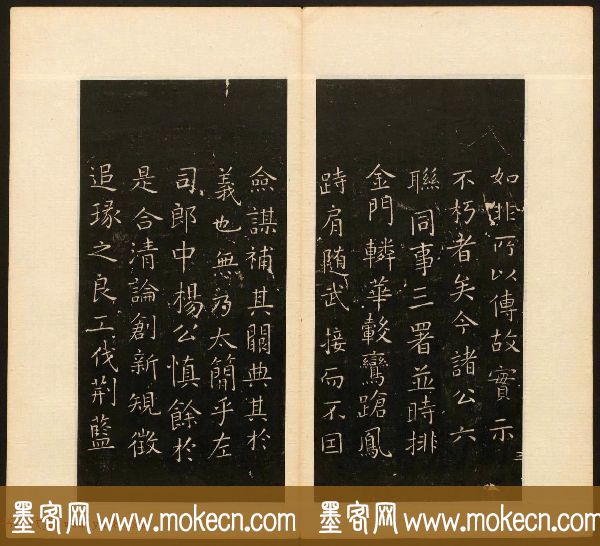 如非所以傳故實示
不朽者矣今諸公六
聯同事三署並時排
金門轔華轂鸞蹌鳳
跱肩随武接而不囙
僉謀補其闕典其扵
義也無乃太簡乎左
司郎中楊公慎餘扵
是合清論創新䂓徵
追琢之良工伐荊藍
三
墨客网 www.mokecn.com 墨客网 www.mokecn.com